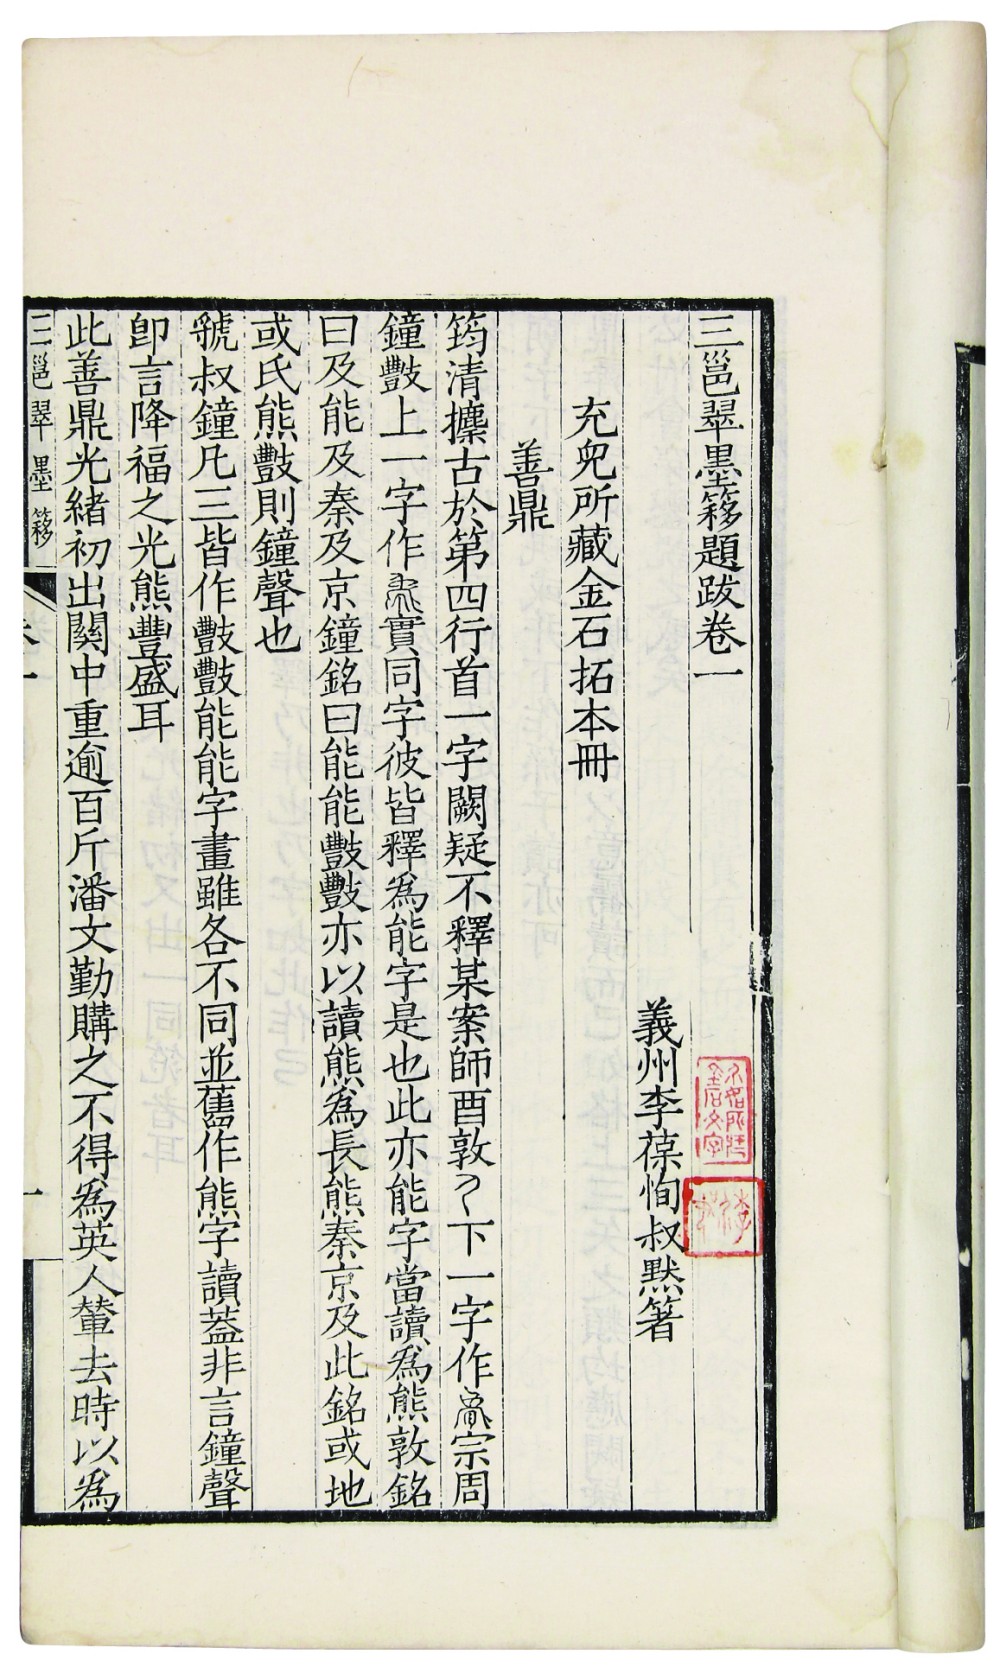 三邕翠墨簃題跋卷一
義州李葆恂叔默箸
充兕所藏金石拓本冊
善鼎
筠清攗古於第四行首一字闕疑不釋某案師酉敦下一字作宗周
鐘數上一字作實同字彼皆釋為能字是也此亦能字當讀為熊敦銘
曰及能及秦及京鐘銘曰能能數數亦以讀熊為長熊秦京及此銘或地
或氏熊數則鐘聲也
虢叔鐘凡三皆作數數能能字畫雖各不同並舊作熊字讀蓋非言鐘聲
卽言降福之光熊豐盛耳
此善鼎光緒初出關中重逾百斤潘文勤購之不得為英人輦去時以為
三邕翠墨簃 卷一 一